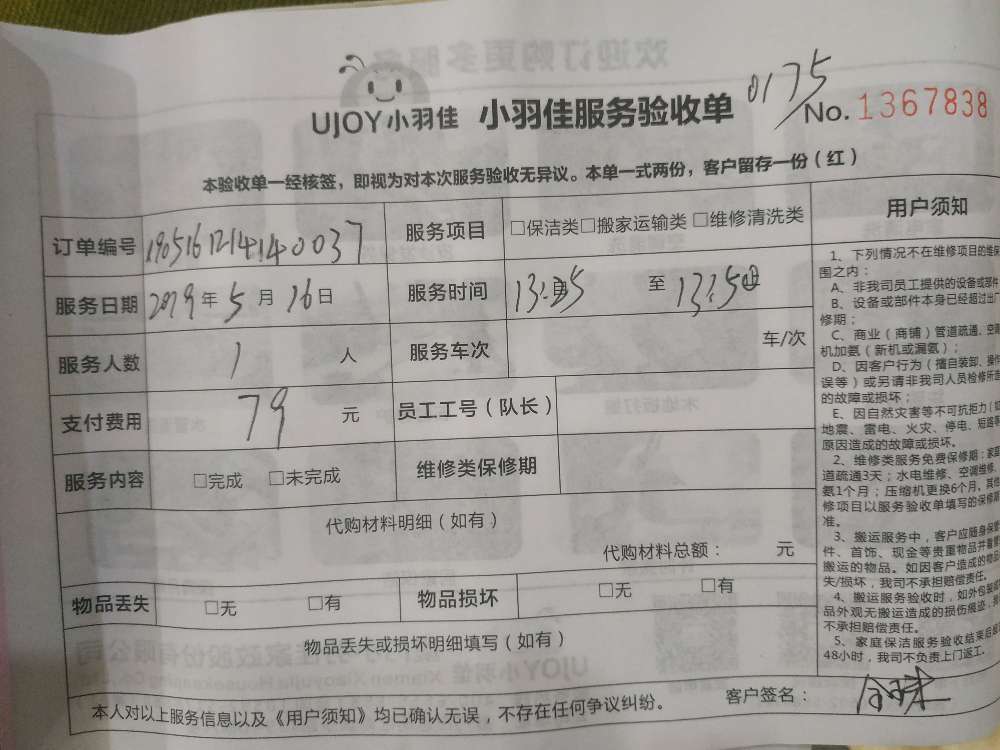 0175
UJOY小羽佳 小羽佳服务验收单 No. 1367838
本验收单一经核签，即视为对本次服务验收无异议。本单一式两份，客户留存一份（红）
订单编号 190516121414 0037 服务项目 □保洁类□搬家运输类 □维修清洗类
服务日期 2019年 5 月 16日 服务时间 至
服务人数 1 人 服务车次 车/次
支付费用 79 元 员工工号（队长）
服务内容 □完成 □未完成 维修类保修期
代购材料明细（如有）
代购材料总额： 元
物品丢失 □无 □有 物品损坏 □无 □有
物品丢失或损坏明细填写（如有）
本人对以上服务信息以及《用户须知》均已确认无误，不存在任何争议纠纷。 客户签名：
用户须知
1、下列情况不在维修项目的维保
围之内：
A、非我司员工提供的设备或部件
B、设备或部件本身已经超过出厂
修期；
C、商业（商铺）管道疏通、空调
机加氨（新机或漏氨）；
D、因客户行为（擅自装卸、操作
误等）或另请非我司人员检修所造
的故障或损坏；
E、因自然灾害等不可抗拒力（如
地震、雷电、火灾、停电、短路等
原因造成的故障或损坏。
2、维修类服务免费保修期：家庭
道疏通3天；水电维修、空调维修、
氨1个月；压缩机更换6个月，其他
修项目以服务验收单填写的保修期
准。
3、搬运服务中，客户应随身保管
件、首饰、现金等贵重物品并看管
搬运的物品。如因客户造成的物品
失/损坏，我司不承担赔偿责任。
4、搬运服务验收时，如外包装或
品外观无搬运造成的损伤痕迹，我
不承担赔偿责任。
5、家庭保洁服务验收结束后超
48小时，我司不负责上门返工。